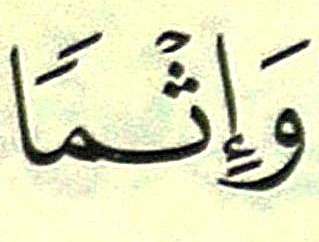 وَإِثْمًا